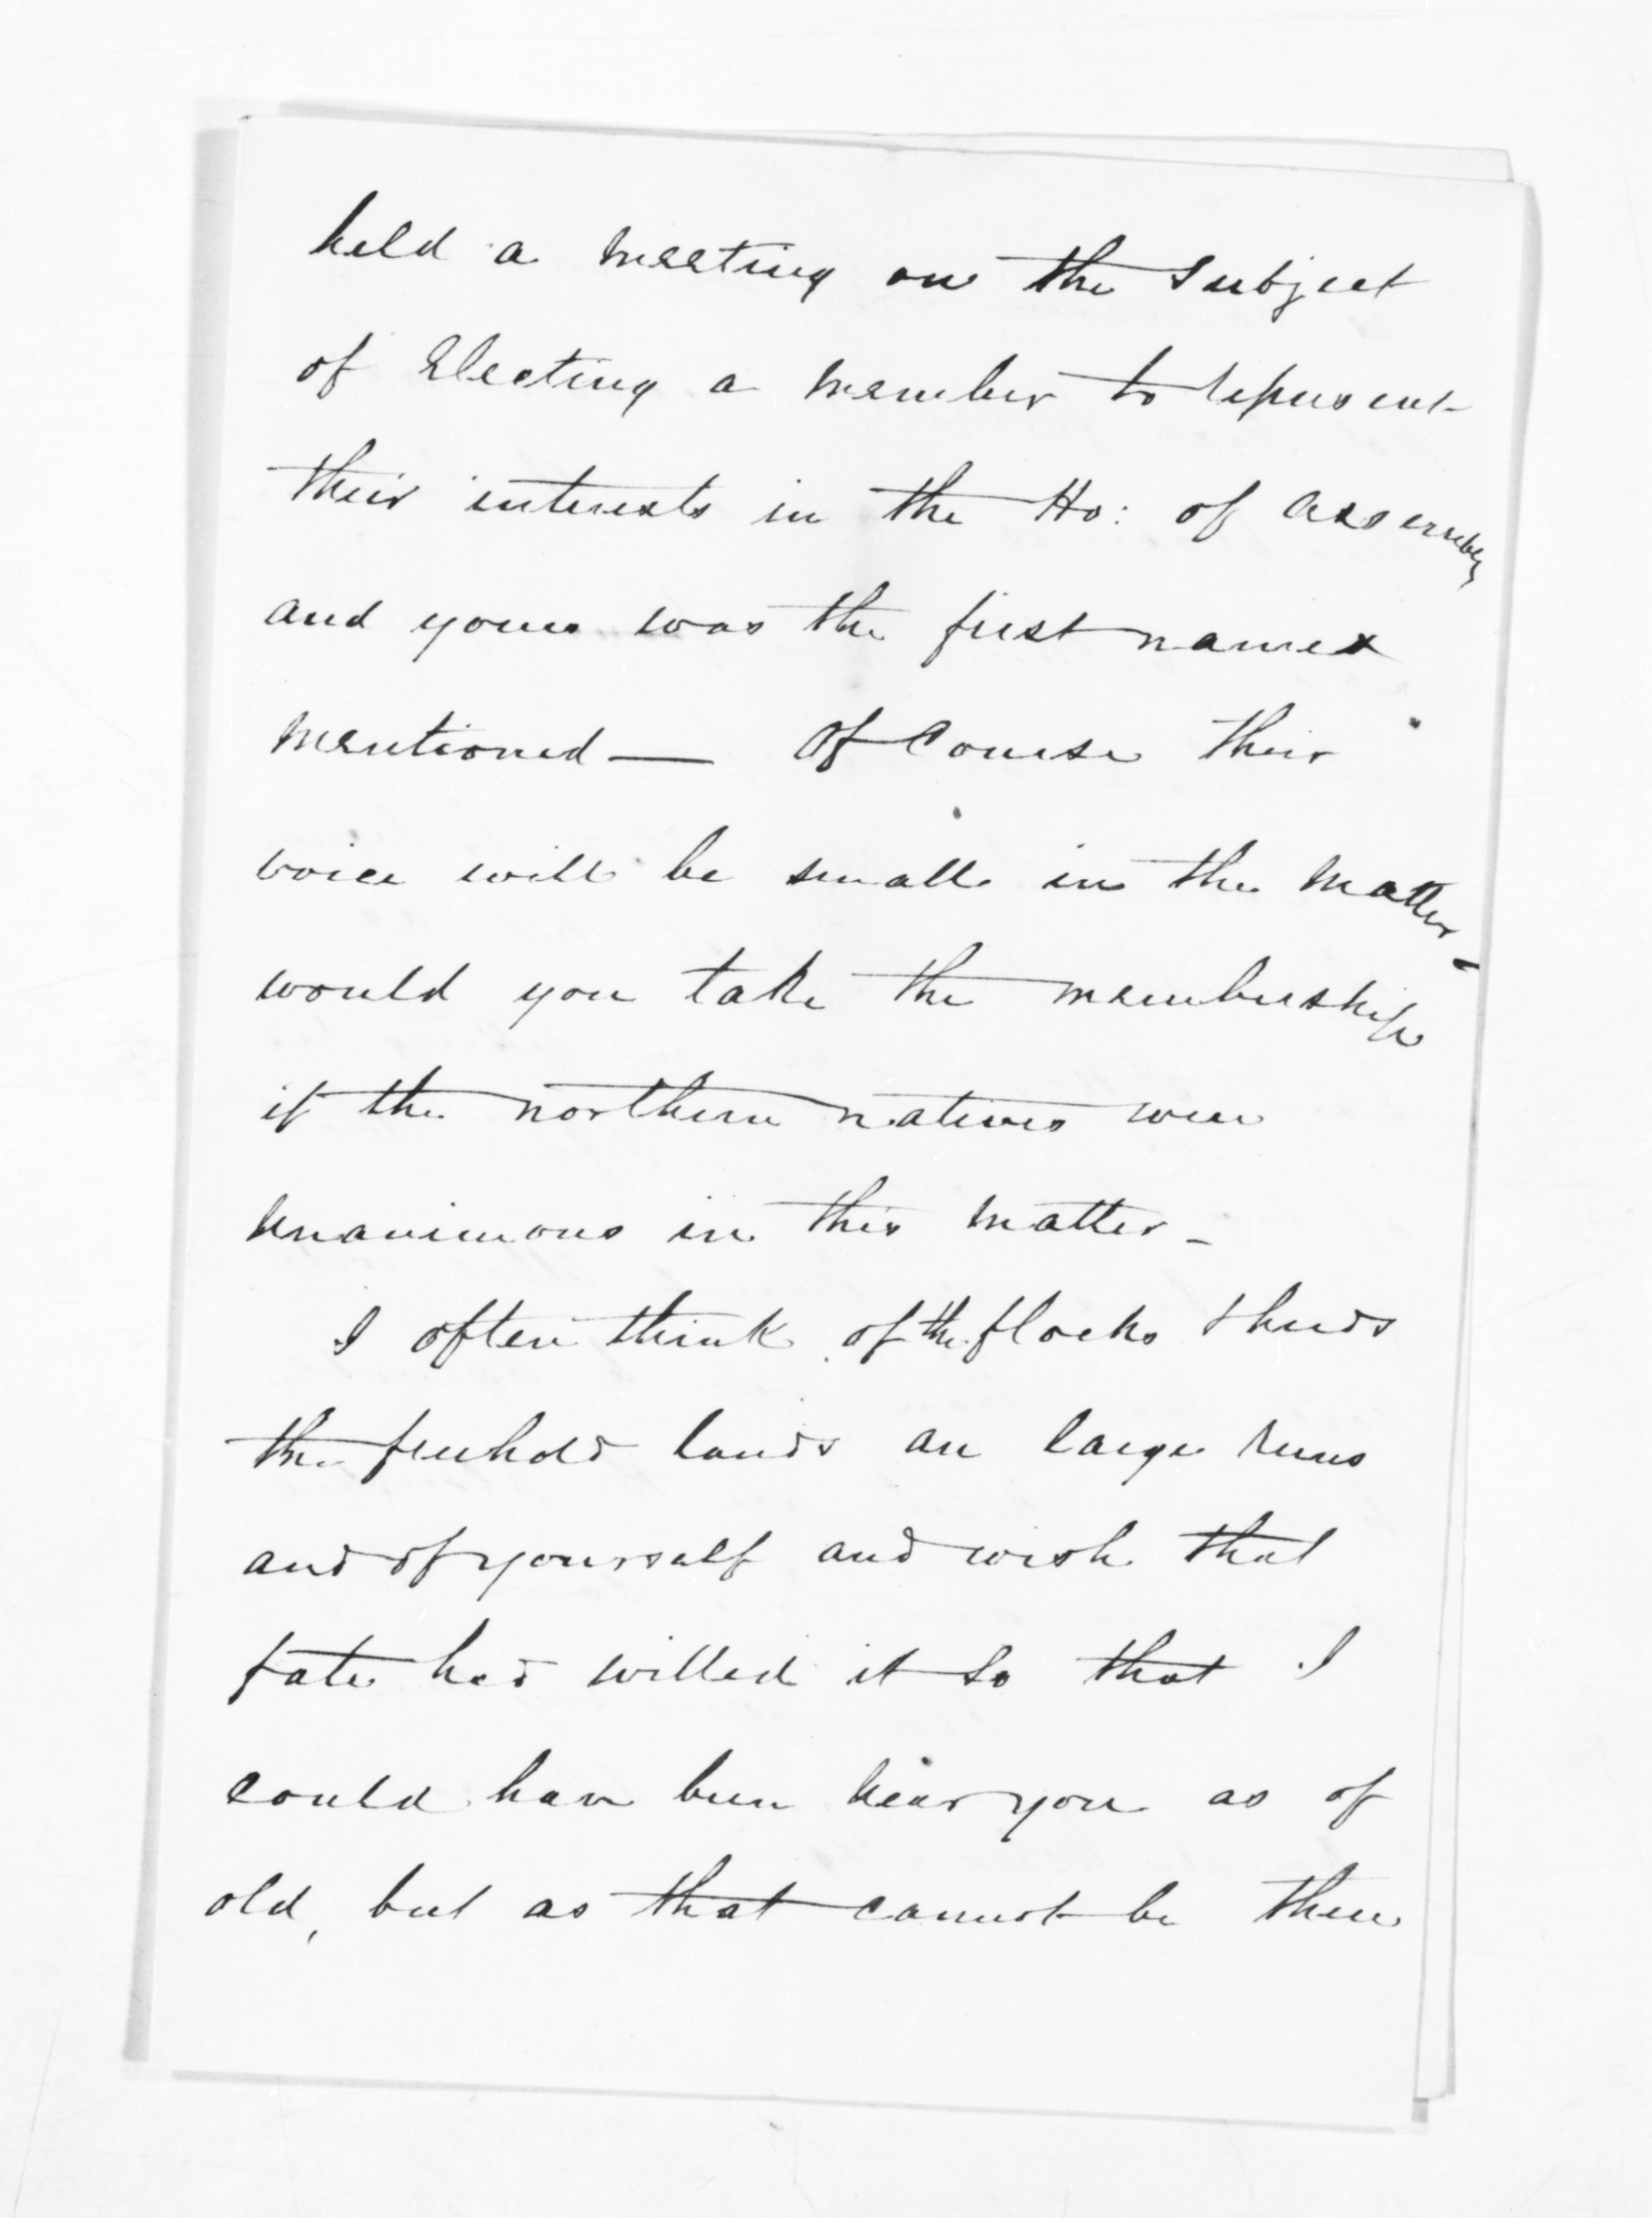 held a meeting on the subject
of Electing a member to represent
their interests in the Ho: of assembly
and yours was the first named
mentioned — Of Course their
voice will be small in the matter -
would you take the membership
if the northern natives were
unanimous in this matter -
I often think of the flocks & herds
the freehold lands an large runs
and of yourself and wish that
fate had willed it so that I
could have been near you as of
old, but as that cannot be then